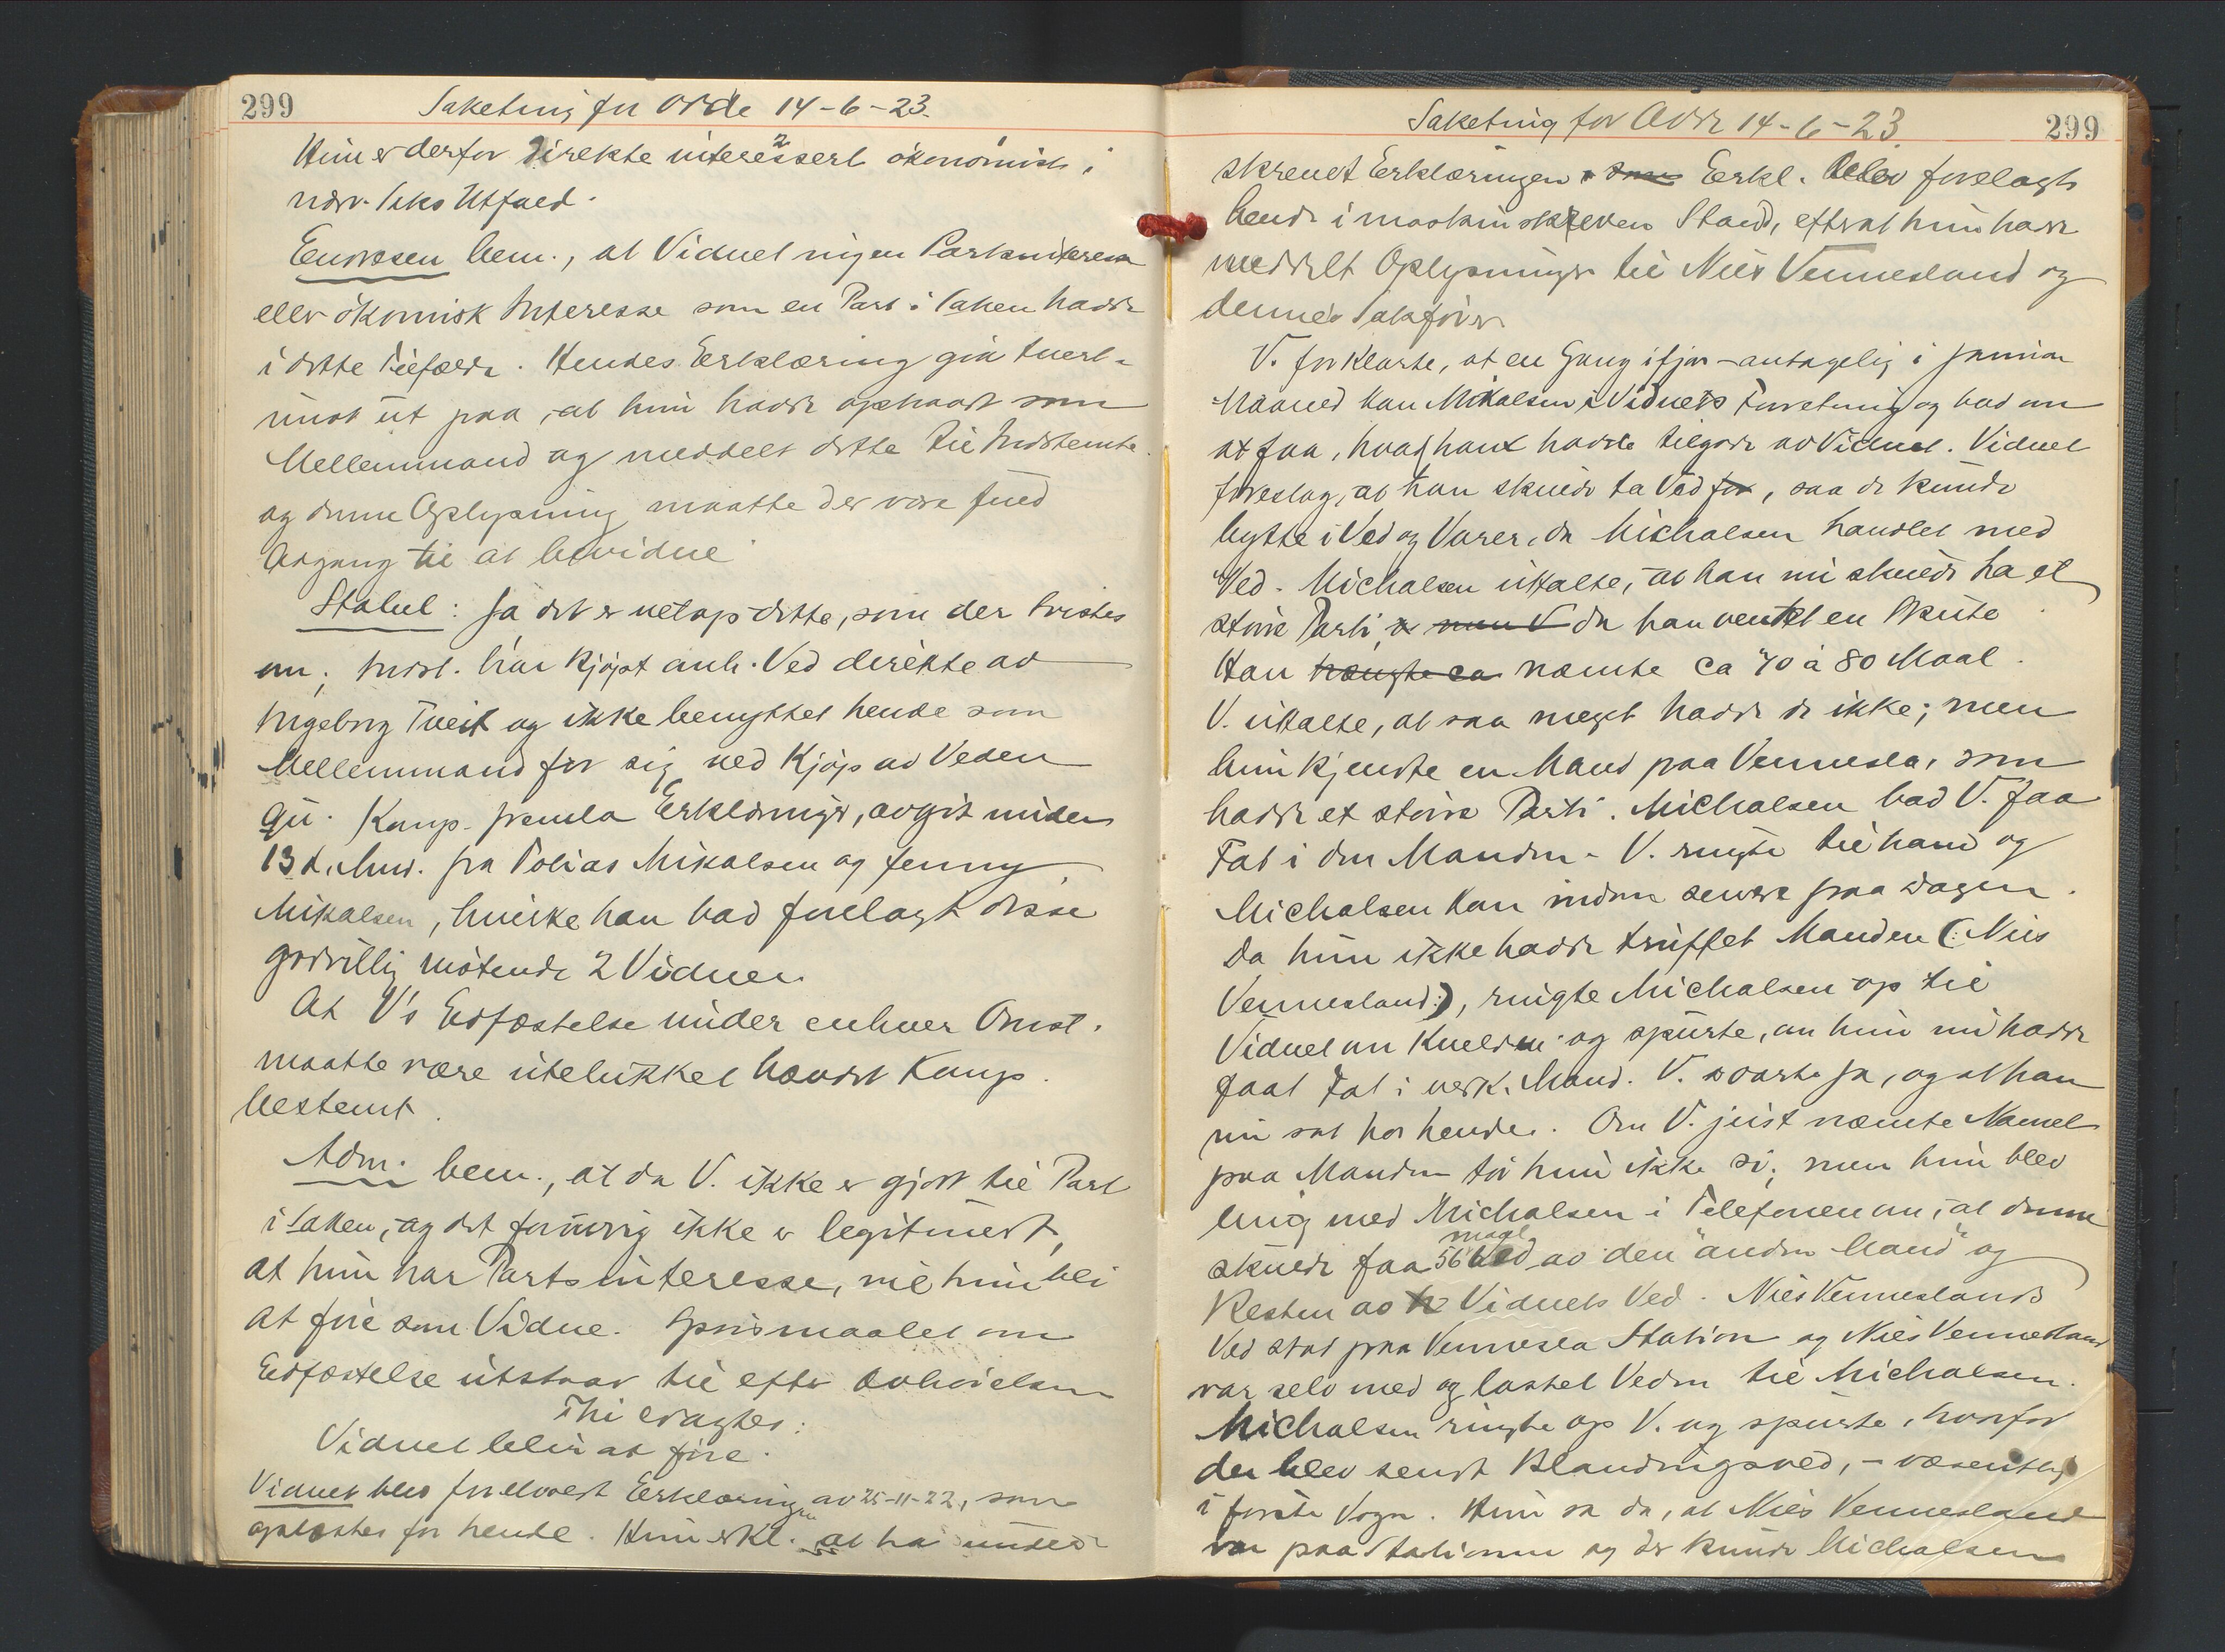 299 Saketing for Odde 14-6-23.
Hun er derfor direkte interessert økonomisk i
nærv. Saks Utfald.
Enoksen bem., at Vidnet ingen Partsinteresse
eller økomisk Interesse som en Part i Saken hadde
i dette Tilfælde. Hendes Erklæring gik tvert-
imot ut paa, at hun hadde optraadt som
Mellemmand og meddelt dette til Indstemte
og denne Oplysning maatte der være fuld
Adgang til at bevidne
Stabel: Ja det er netop dette, som der tvistes
om; Indst. har kjøpt anh. Ved direkte av
Ingeborg Tveit og ikke benyttet hende som
Mellemmand for sig ved Kjøp av Veden
Qu. Komp. freml. Erklæringer, avgit under
13 d. Md. fra Tobias Mikalsen og Jenny
Mikalsen, hvilke han bad forelagt disse
godvillig møtende 2 Vidner.
At V's Edfæstelse under enhver Omst.
maatte være utelukket hævdet Komp.
bestemt.
Adm. bem., at da V. ikke er gjort til Part
i Saken, og det forøvrig ikke er legitimert,
at hun har Partsinteresse, vil hun bli
at føre som Vidne. Spørsmaalet om
Edfæstelse utstaar til efter Avhørelsen
Thi eragtes:
Vidnet blir at føre.
Vidnet blev foreholdt Erklæringen av 25-11-22, som
oplæstes for hende. Hun erkl. at ha under-
Saketing for Odde 14-6-23. 299
skrevet Erklæringen. Erkl. blev forelagt
hende i maskinskreven Stand, efterat hun hadde
meddelt Oplysninger til Nils Vennesland og
dennes Sakfører
V. forklarte, at en Gang ifjor - antagelig i Januar
Maaned kom Mikalsen i Vidnets Forretning og bad om
at faa, hvad han hadde tilgode av Vidnet. Vidnet
foreslog, at han skulde ta Ved for, saa de kunde
bytte i Ved og Varer, da Michalsen handlet med
Ved. Michalsen uttalte, at han nu skulde ha et
større Parti da han ventet en Skute
Han nævnte ca 70 à 80 Maal.
V. uttalte, at saa meget hadde de ikke; men
hun kjendte en Mand paa Vennesla, som
hadde et større Parti. Michalsen bad V. faa
Fat i den Manden - V. ringte til ham og
Michalsen kom indom senere paa Dagen.
Da hun ikke hadde truffet Manden (: Nils
Vennesland:), ringte Michalsen op til
Vidnet om Kvelden og spurte, om hun nu hadde
faat Fat i vedk. Mand. V. svarte Ja, og at han
nu sat hos hende. Om V. just nævnte Navnet
paa Manden tør hun ikke si; men hun blev
enig med Michalsen i Telefonen om, at denne
skulde faa 56 maal Ved av den "anden Mand" og
Resten av Vidnets Ved. Nils Venneslands
Ved stod paa Vennesla Station og Nils Vennesland
var selv med og lastet Veden til Michalsen.
Michalsen ringte op V. og spurte, hvorfor
der blev sendt Blandingsved, - væsentlig
i første Vogn. Hun sa da, at Nils Vennesland
var paa Stationen og der kunde Michalsen